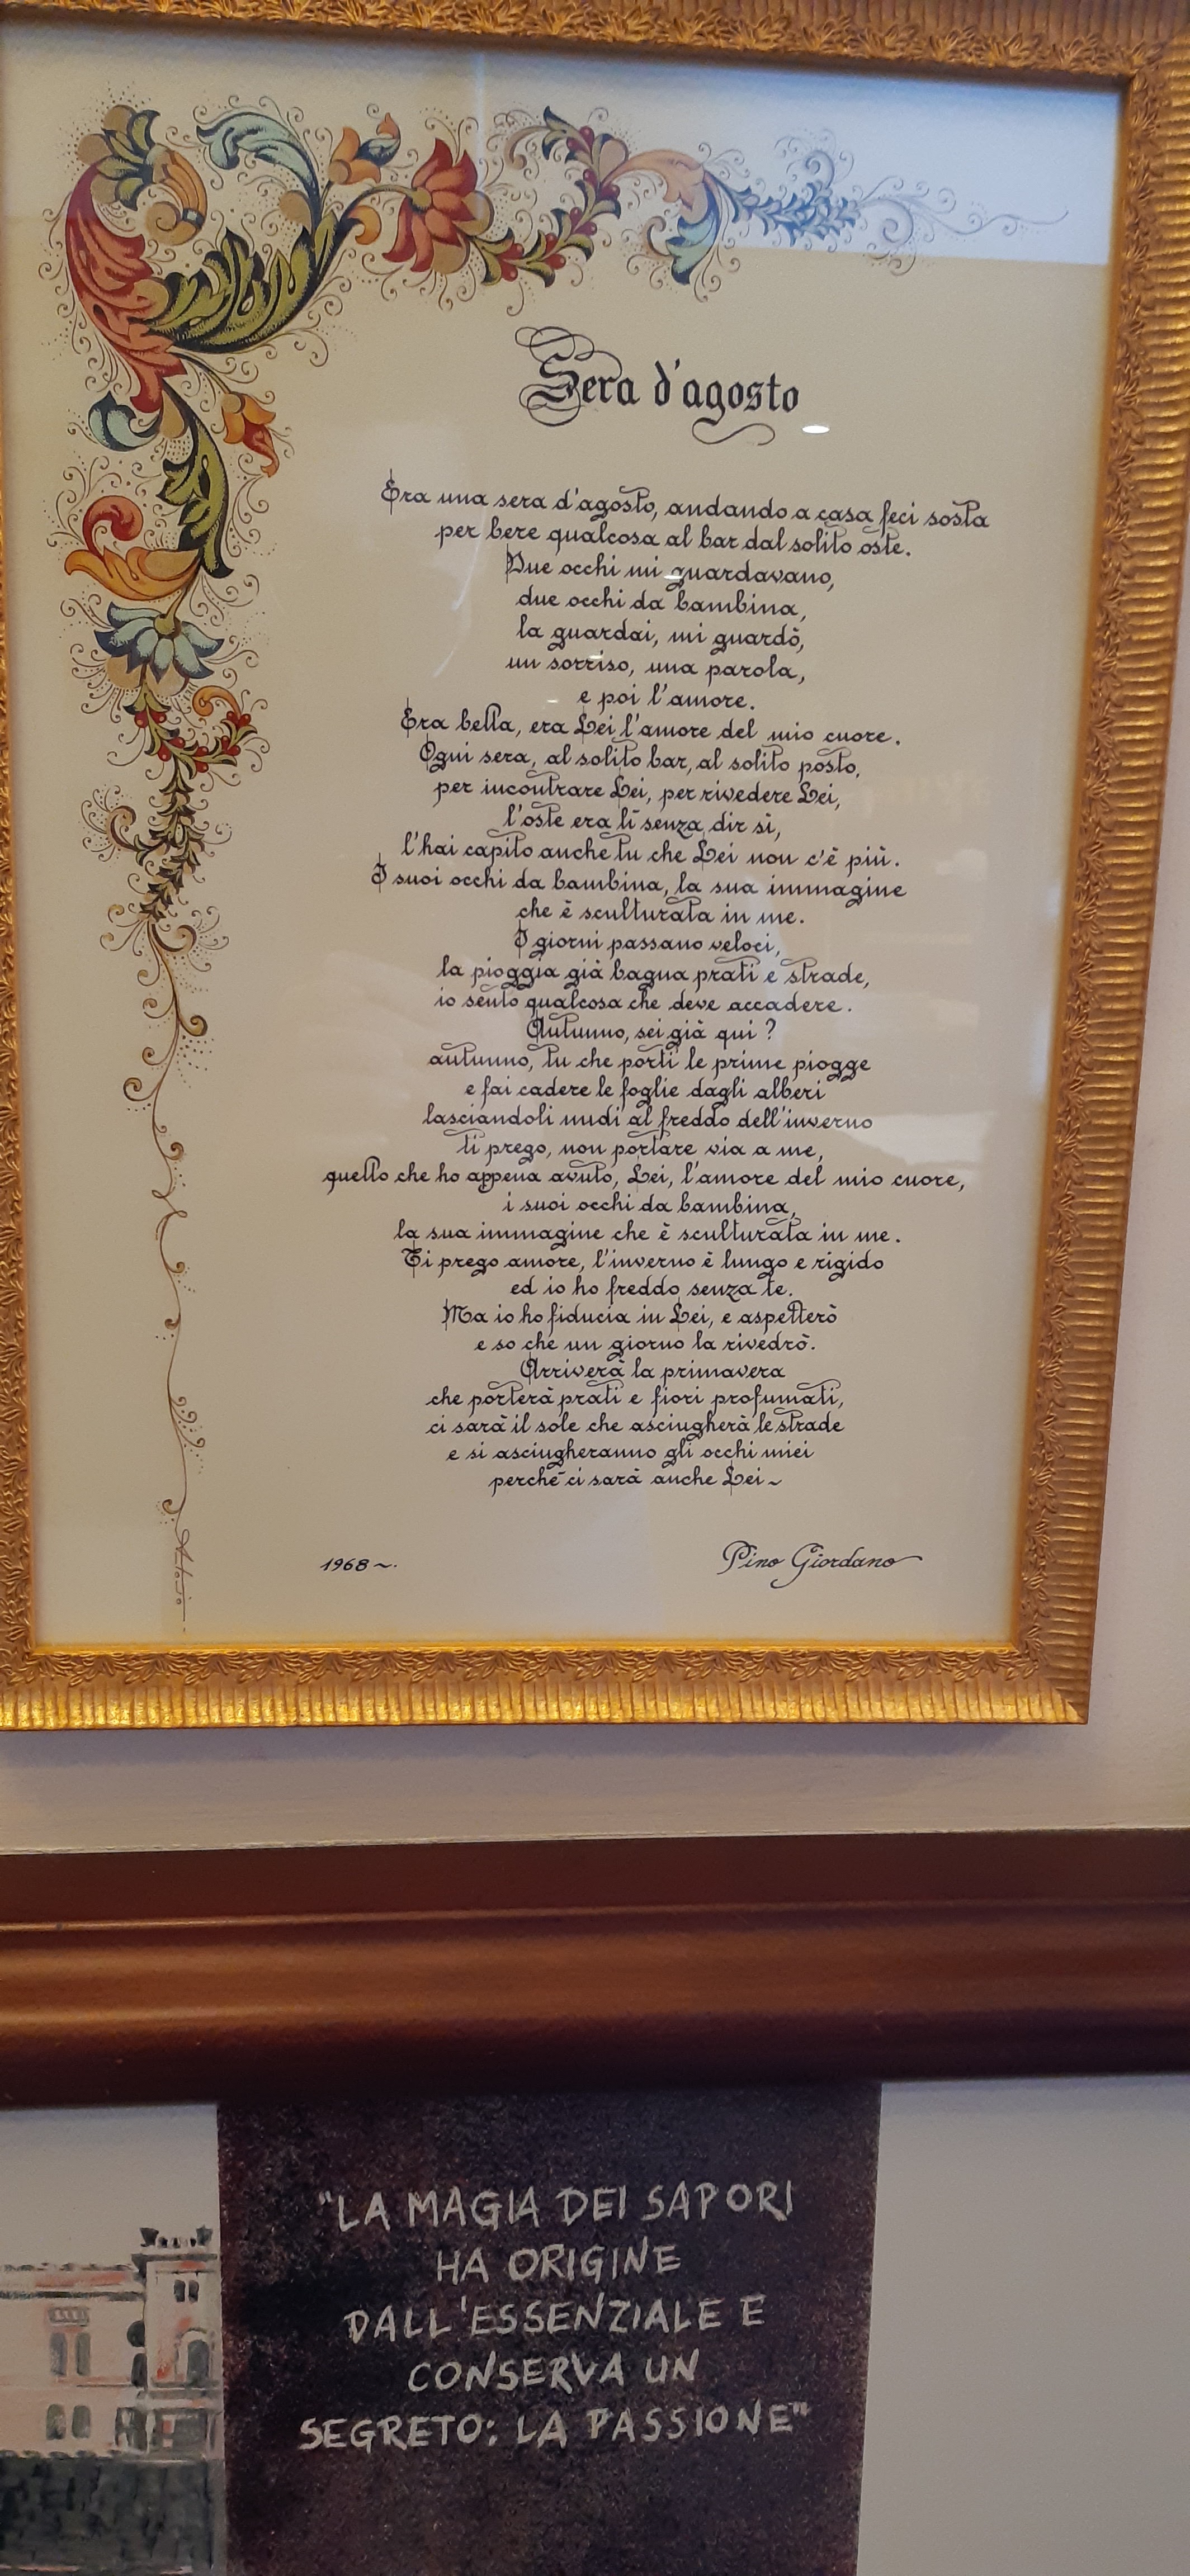 Sera d'agosto
Era una sera d'agosto, andando a casa feci sosta
per bere qualcosa al bar dal solito oste.
Due occhi mi guardavano,
due occhi da bambina,
la guardai, mi guardò,
un sorriso, una parola,
e poi l'amore.
Era bella, era Lei l'amore del mio cuore.
Ogni sera, al solito bar, al solito posto,
per incontrare Lei, per rivedere Lei,
l'oste era lì senza dir sì,
l'hai capito anche tu che Lei non c'è più.
I suoi occhi da bambina, la sua immagine
che è sculturata in me.
I giorni passano veloci,
la pioggia già bagna prati e strade,
io sento qualcosa che deve accadere.
Autunno, sei già qui ?
autunno, tu che porti le prime piogge
e fai cadere le foglie dagli alberi
lasciandoli nudi al freddo dell'inverno
ti prego, non portare via a me,
quello che ho appena avuto, Lei, l'amore del mio cuore,
i suoi occhi da bambina,
la sua immagine che è sculturata in me.
Ti prego amore, l'inverno è lungo e rigido
ed io ho freddo senza te.
Ma io ho fiducia in Lei, e aspetterò
e so che un giorno la rivedrò.
Arriverà la primavera
che porterà prati e fiori profumati,
ci sarà il sole che asciugherà le strade
e si asciugheranno gli occhi miei
perchè ci sarà anche Lei~
1968~.
Pino Giordano
"LA MAGIA DEI SAPORI
HA ORIGINE
DALL'ESSENZIALE E
CONSERVA UN
SEGRETO: LA PASSIONE"